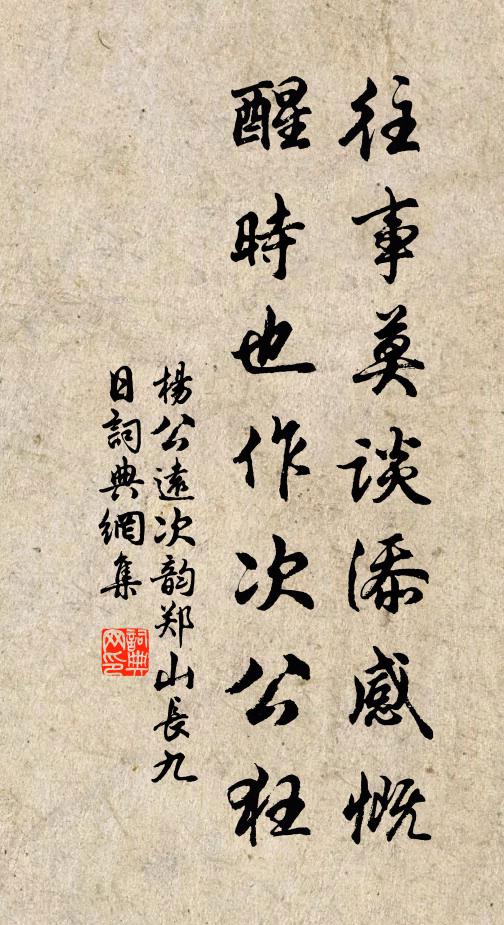 往事莫谈添感慨
醒時也作次公狂
楊公遠次韵郑山長九
日詞典網集
詞典
网印